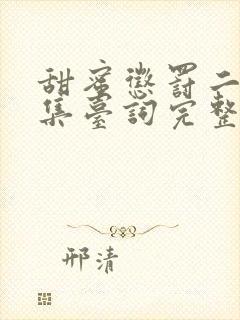 甜蜜懲罰二
集臺詞完整
邢清